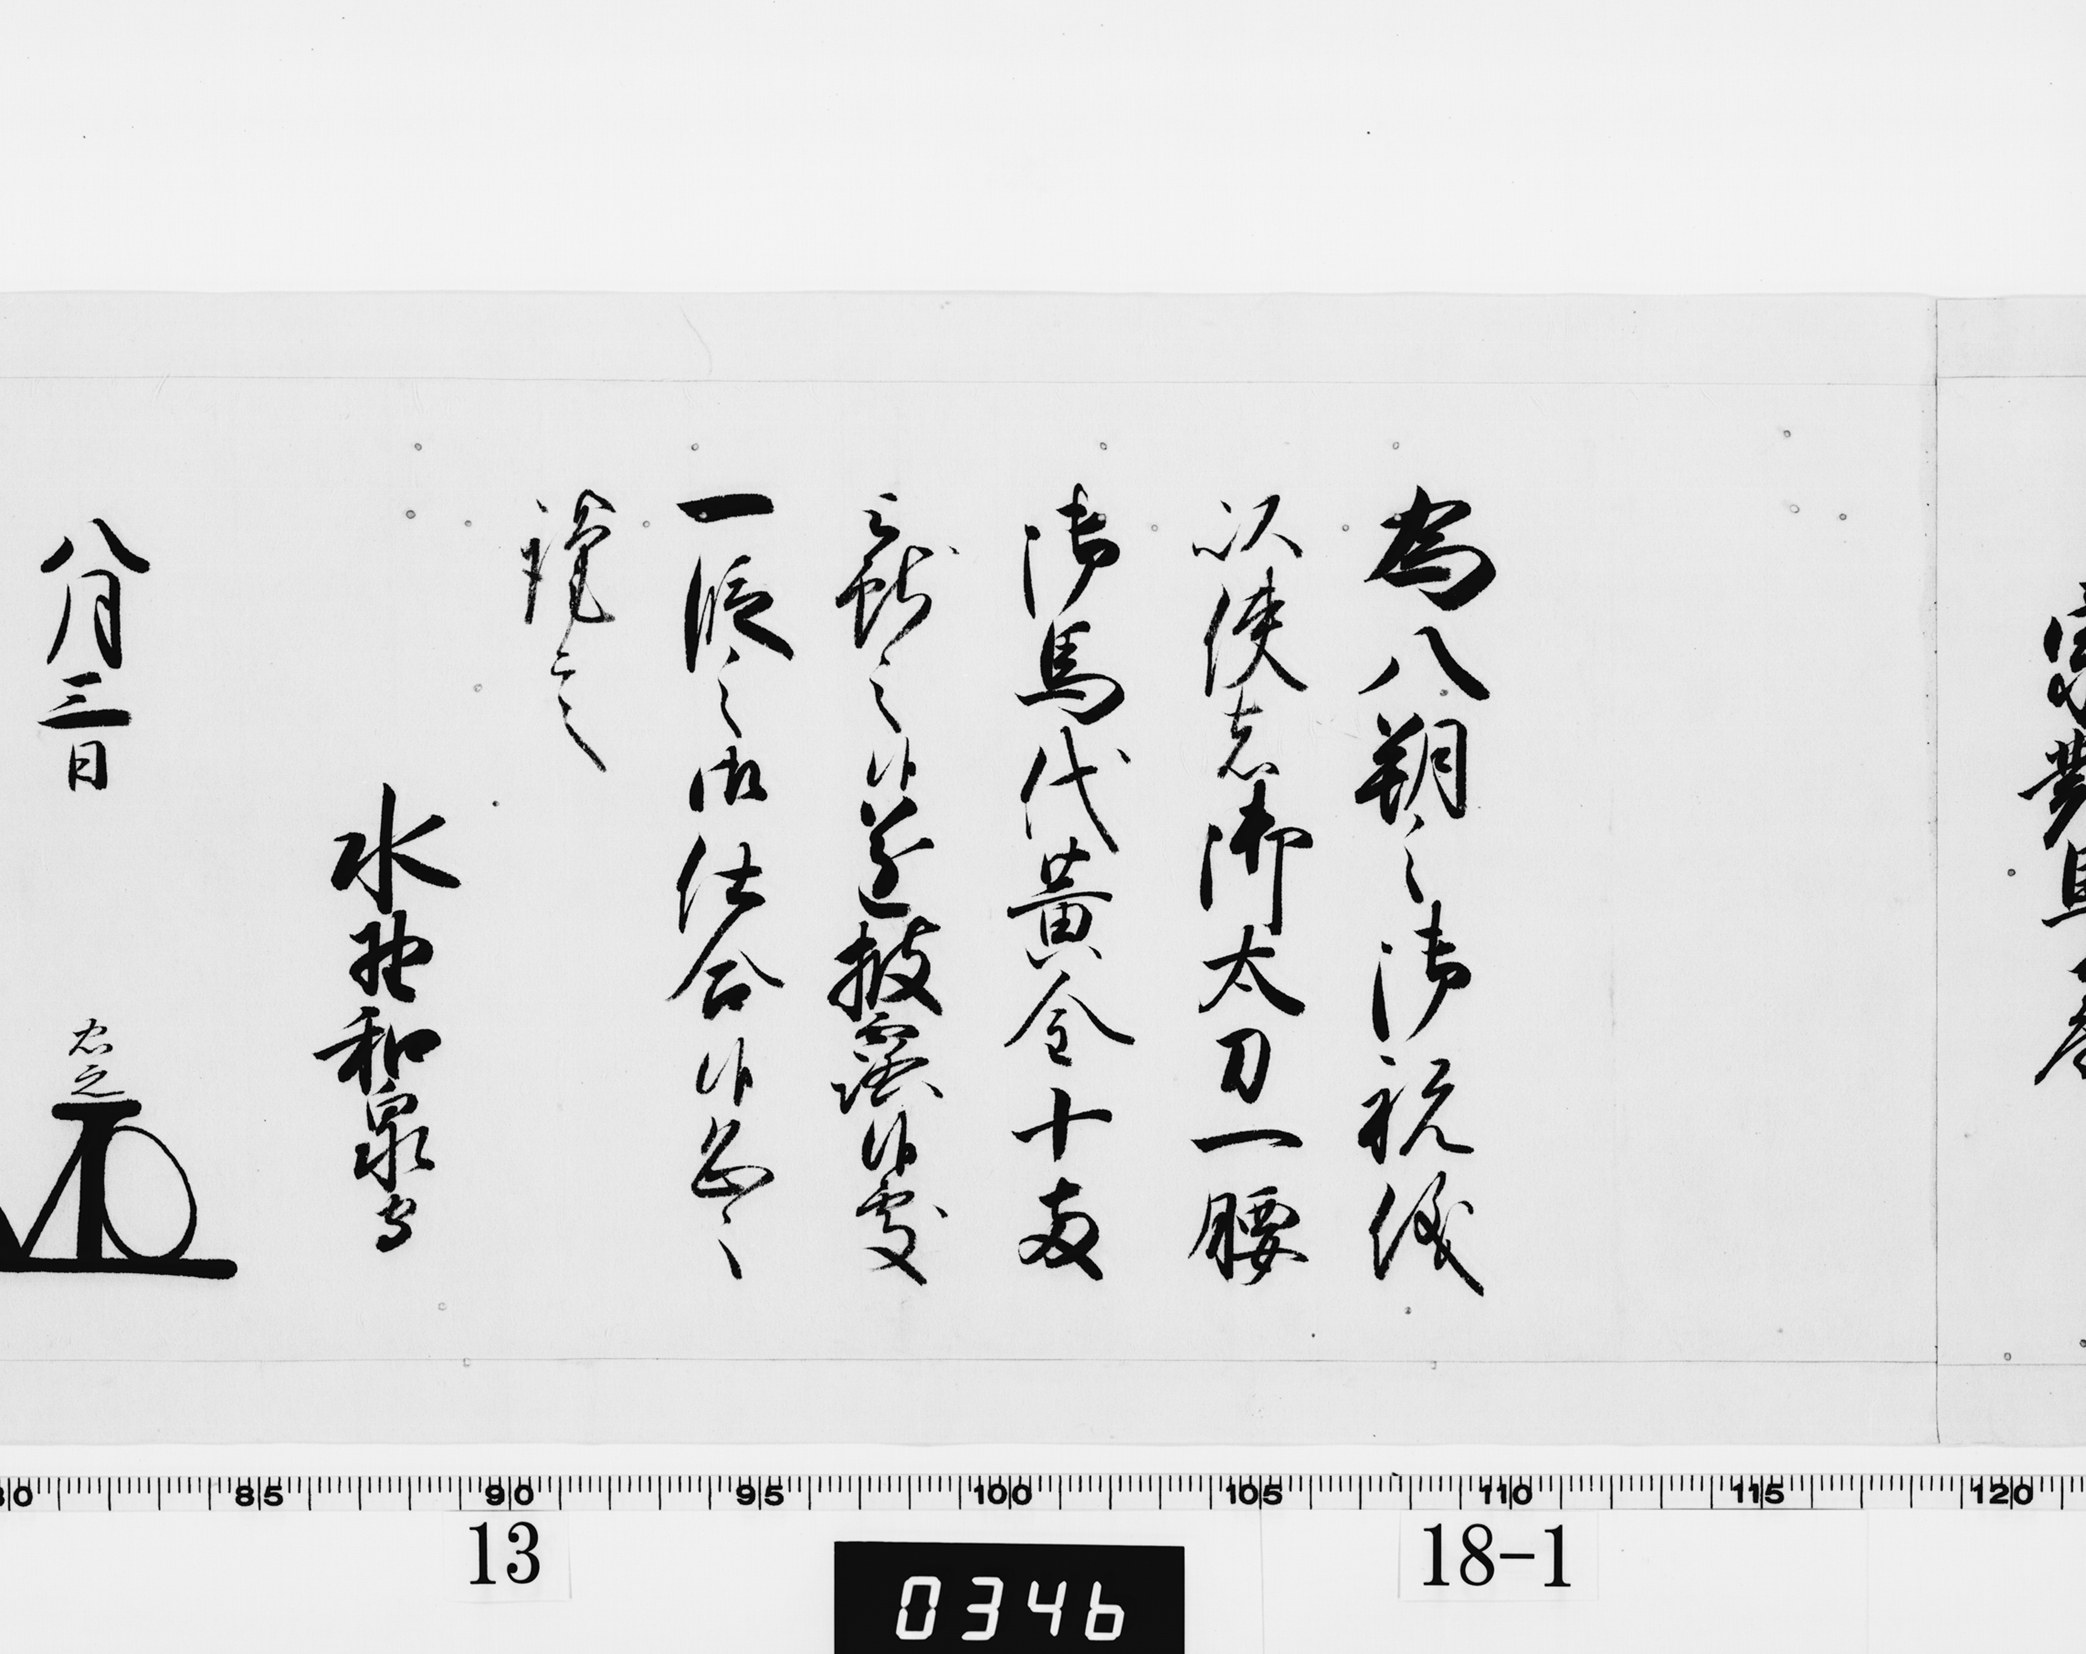 宗對馬
為八朔之御祝儀
以使者御太刀一腰
御馬代黄金十両
被献之候遂披露候処
一段之御仕合候恐々
謹言
水野和泉守
八月三日
忠之
85 90 95 100 105 110 115 120
13
0346
18-1